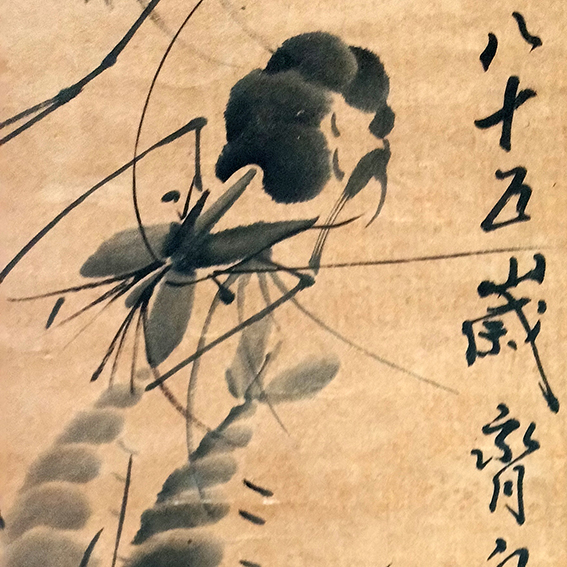 八十五歲齊